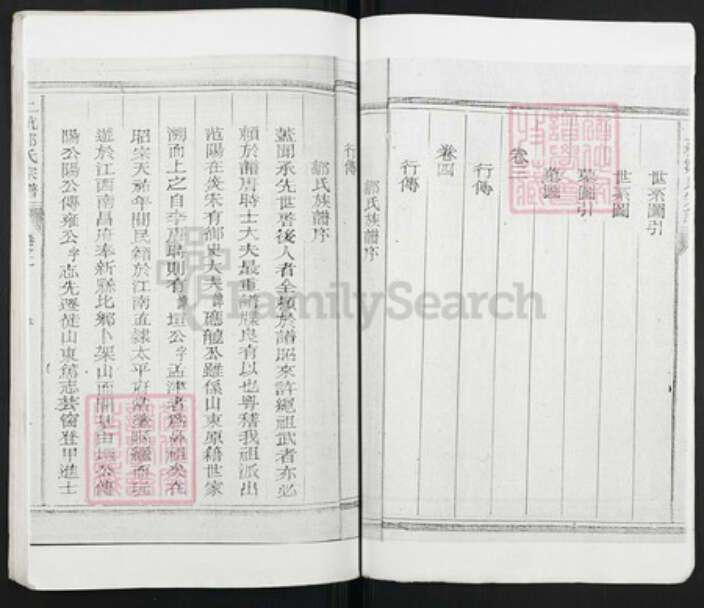 世系圖引
世系圖
墓圖引
墓圖
卷三
行傳
卷四
行傳
鄒氏族譜序
行傳
鄒氏族譜序
蓋聞承先世啓後人者全頼於譜昭來許繩祖武者亦必
頼於譜唐時士大夫最重譜牒良有以也粤稽我祖派出
范陽在後宋有御史大夫諱應龍公雖係山東原籍世家
溯而上之自李唐時則有諱垣公字孟津者為鼻祖矣在
昭宗天祐年間民籍於江南直隸太平府
遊於江西南昌府奉新縣北鄉卜架山而開基由垣公傳
陽公陽公傳雍公字志先遷徙山東篤志芸窗登甲進士
FamilySearch